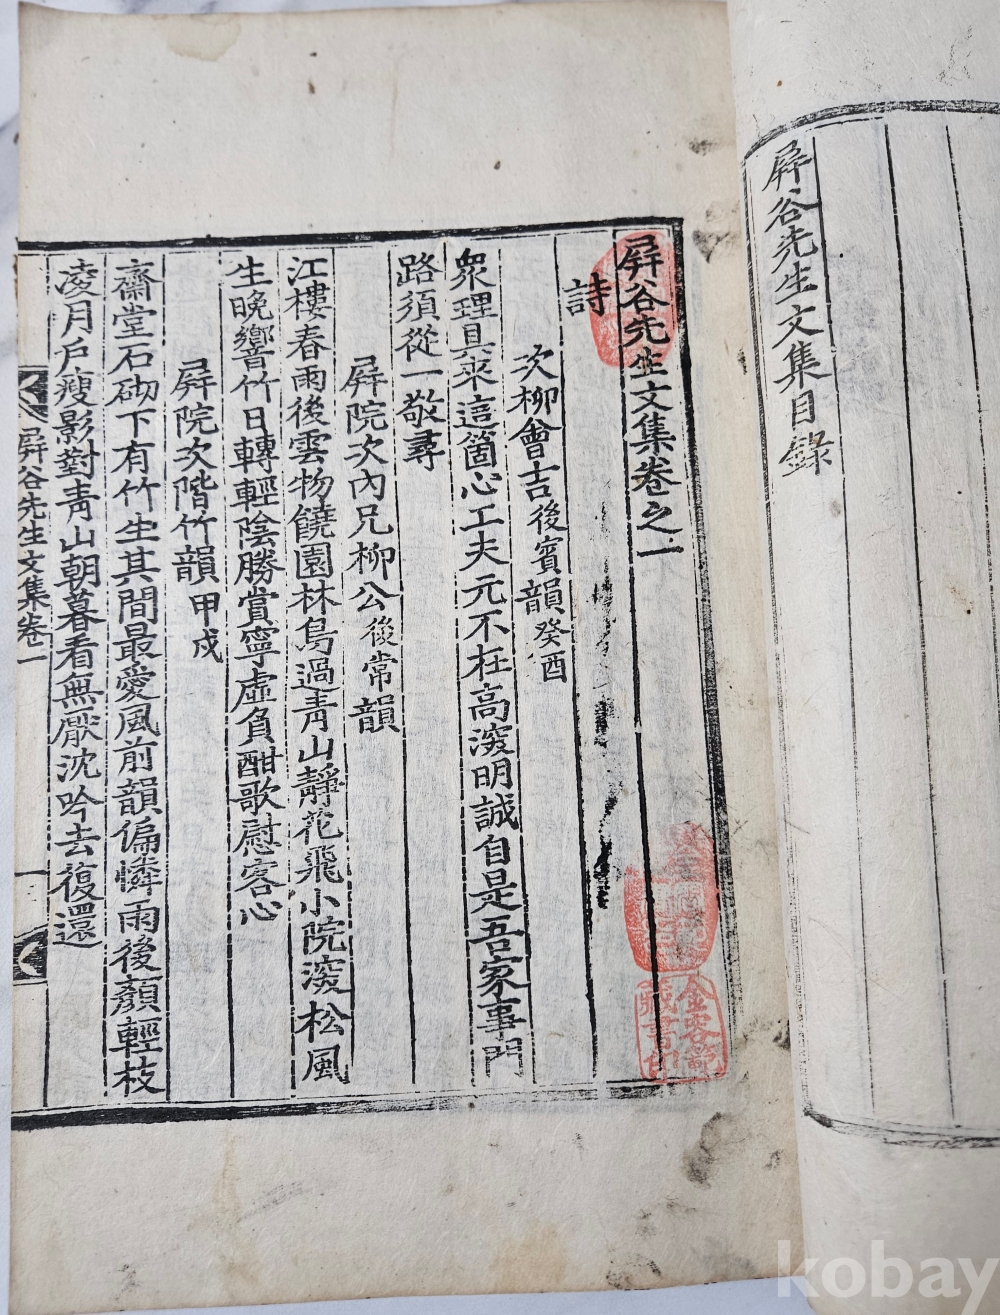 屛谷先生文集目錄
屛谷先生文集卷之一
詩
次柳會吉後賓韻 癸酉
衆理具來這箇心工夫元不在高深明誠自是吾家事門
路須從一敬尋
屛院次內兄柳公後常韻
江樓春雨後雲物饒園林鳥過靑山靜花飛小院深松風
生晩響竹日轉輕陰勝賞寧虛負酣歌慰客心
屛院次階竹韻 甲戌
齋堂石砌下有竹生其間最愛風前韻偏憐雨後顏輕枝
凌月戶瘦影對靑山朝暮看無厭沈吟去復還
屛谷先生文集卷一
一
藏書印
kobay